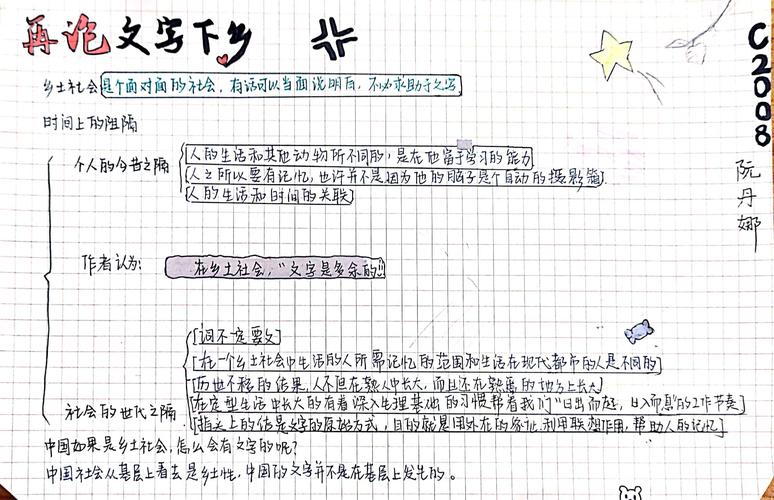 再论文字下乡
C2008
阮丹娜
乡土社会是个面对面的社会，有话可以当面说明白，不必求助于文字
时间上的阻隔
个人的今昔之隔
人的生活和其他动物所不同的，是在他富于学习的能力
人之所以要有记忆，也许并不是因为他的脑子是个自动的摄影箱
人的生活和时间的关联
作者认为：
在乡土社会，"文字是多余的"
社会的世代之隔
词不一定要文
在一个乡土社会中生活的人所需记忆的范围和生活在现代都市的人是不同的
历世不移的结果，人不但在熟人中长大，而且还在熟悉的地方上长大
在定型生活中长大的有着深入生理基础的习惯帮着我们"日出而起，日入而息"的工作节奏
指头上的结是文字的原始方式，目的就是用外在的象征，利用联想作用，帮助人的记忆
中国如果是乡土社会，怎么会有文字的呢？
中国社会从基层上看去是乡土性，中国的文字并不是在基层上发生的。